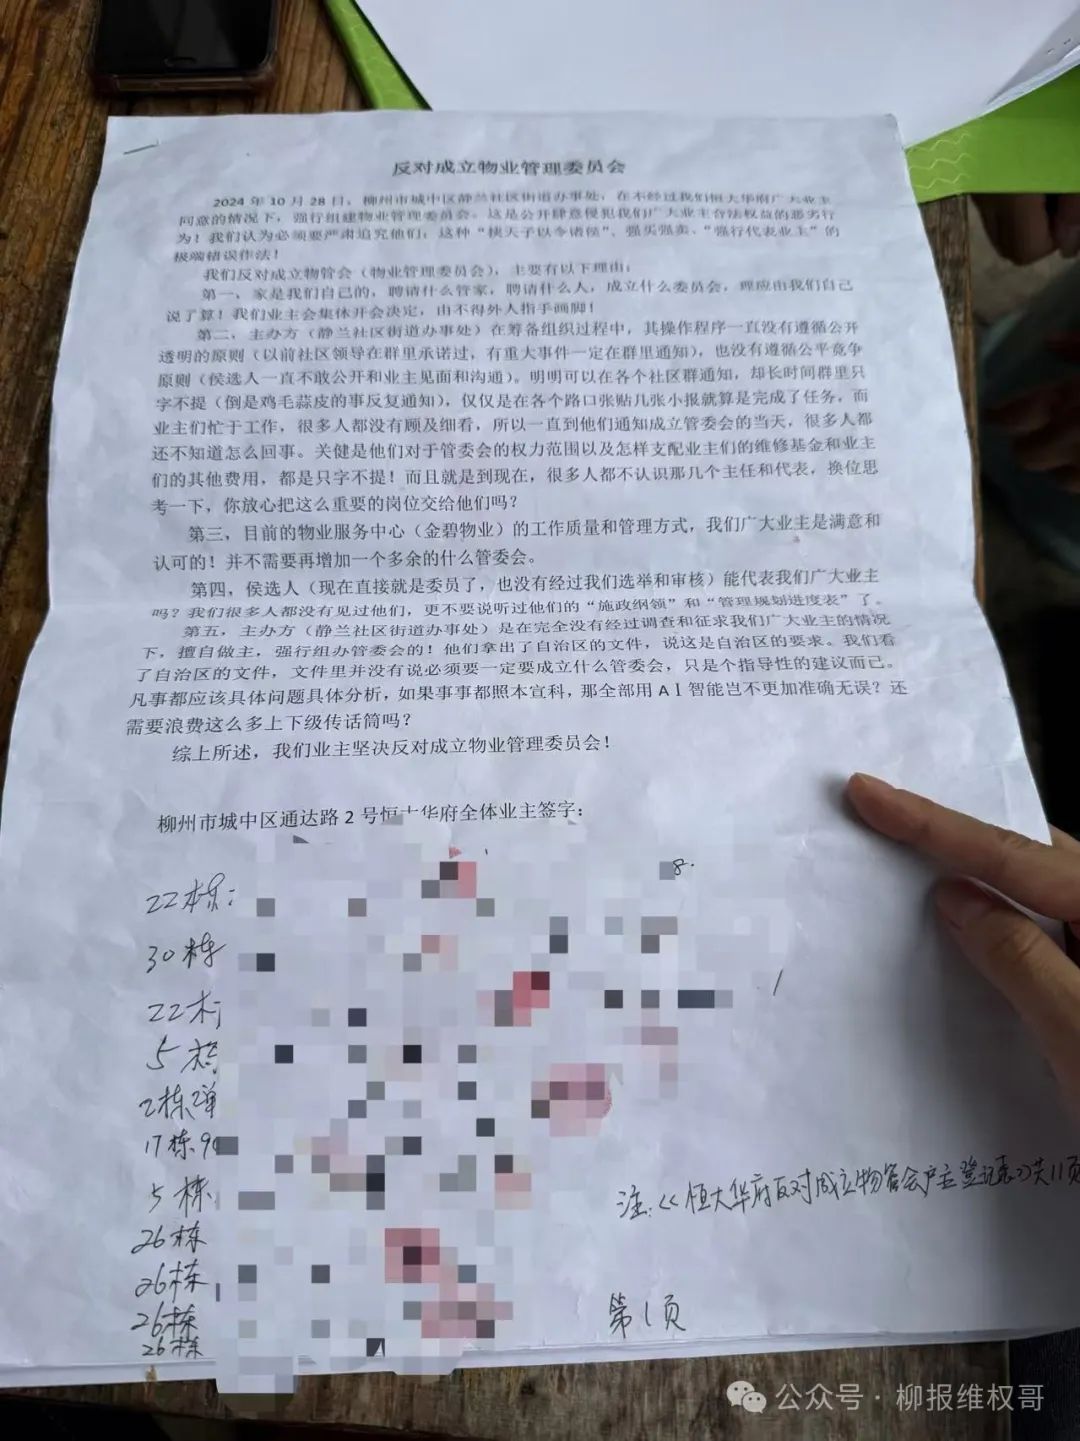 反对成立物业管理委员会
2024年10月28日，柳州市城中区静兰社区街道办事处，在不经过我们恒大华府广大业主
同意的情况下，强行组建物业管理委员会。这是公开肆意侵犯我们广大业主合法权益的恶劣行
为！我们认为必须要严肃追究他们，这种“挟天子以令诸侯”、强买强卖、“强行代表业主”的
极端错误作法！
我们反对成立物管会（物业管理委员会），主要有以下理由：
第一、家是我们自己的，聘请什么管家，聘请什么人，成立什么委员会，理应由我们自己
说了算！我们业主会集体开会决定，由不得外人指手画脚！
第二，主办方（静兰社区街道办事处）在筹备组织过程中，其操作程序一直没有遵循公开
透明的原则（以前社区领导在群里承诺过，有重大事件一定在群里通知），也没有遵循公平竞争
原则（侯选人一直不敢公开和业主见面和沟通）。明明可以在各个社区群通知，却长时间群里只
字不提（倒是鸡毛蒜皮的事反复通知），仅仅是在各个路口张贴几张小报就算是完成了任务，而
业主们忙于工作，很多人都没有顾及细看，所以一直到他们通知成立管委会的当天，很多人都
还不知道怎么回事。关健是他们对于管委会的权力范围以及怎样支配业主们的维修基金和业主
们的其他费用，都是只字不提！而且就是到现在，很多人都不认识那几个主任和代表，换位思
考一下，你放心把这么重要的岗位交给他们吗？
第三，目前的物业服务中心（金碧物业）的工作质量和管理方式，我们广大业主是满意和
认可的！并不需要再增加一个多余的什么管委会。
第四，侯选人（现在直接就是委员了，也没有经过我们选举和审核）能代表我们广大业主
吗？我们很多人都没有见过他们，更不要说听过他们的“施政纲领”和“管理规划进度表”了。
第五，主办方（静兰社区街道办事处）是在完全没有经过调查和征求我们广大业主的情况
下，擅自做主，强行组办管委会的！他们拿出了自治区的文件，说这是自治区的要求。我们看
了自治区的文件，文件里并没有说必须要一定要成立什么管委会，只是个指导性的建议而已。
凡事都应该具体问题具体分析，如果事事都照本宣科，那全部用AI智能岂不更加准确无误？还
需要浪费这么多上下级传话筒吗？
综上所述，我们业主坚决反对成立物业管理委员会！
柳州市城中区通达路2号恒大华府全体业主签字：
22栋：
8.
30栋
22栋
5栋
2栋2单
17栋9
5栋
注：<<恒大华府反对成立物管会户主登记表>>共11页
26栋
26栋
26栋
26栋
第1页
公众号·柳报维权哥